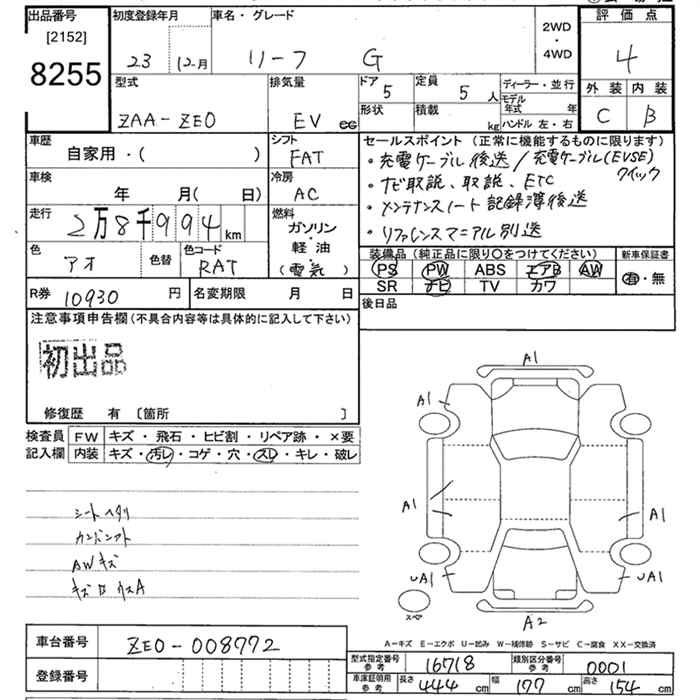 出品番号 初度登録年月 車名・グレード 評価点
[2152] 23 12月 リーフ G 2WD・4WD 4
8255
型式 排気量 ドア 5 定員 5人 ディーラー・並行 外装 内装
ZAA-ZE0 EV cc 形状 積載 kg モデル年式 年 C B
ハンドル 左・右
車歴 シフト セールスポイント (正常に機能するものに限ります)
自家用・( ) FAT ・充電ケーブル後送/充電ケーブル(EVSE)
クイック
車検 冷房 ・ナビ取説、取説、ETC
年 月(日) AC ・メンテナンスノート記録簿後送
走行 燃料 ・リファレンスマニアル別送
2万8千994km ガソリン
軽・油
(電気)
色 色替 色コード 装備品(純正品に限り○をつけてください) 新車保証書
アオ RAT PS PW ABS エアB AW 有・無
SR ナビ TV カワ
R券 10930円 名変期限 月 日 後日品
注意事項申告欄(不具合内容等は具体的に記入して下さい)
初出品
修復歴 有 〔箇所 〕
検査員 FW キズ・飛石・ヒビ割・リペア跡・×要
記入欄 内装 キズ・汚レ・コゲ・穴・スレ・キレ・破レ
シートヘタリ
AWキズ
A1
A1
A1
A1 A1
UA1 UA1
スペア
A2
A-キズ E-エクボ U-凹み W-補修跡 S-サビ C-腐食 XX-交換済
車台番号 ZE0-008772
登録番号
型式指定番号 参考 16718 類別区分番号 参考 0001
車庫証明用 参考 長さ 444cm 幅 177cm 高さ 154cm